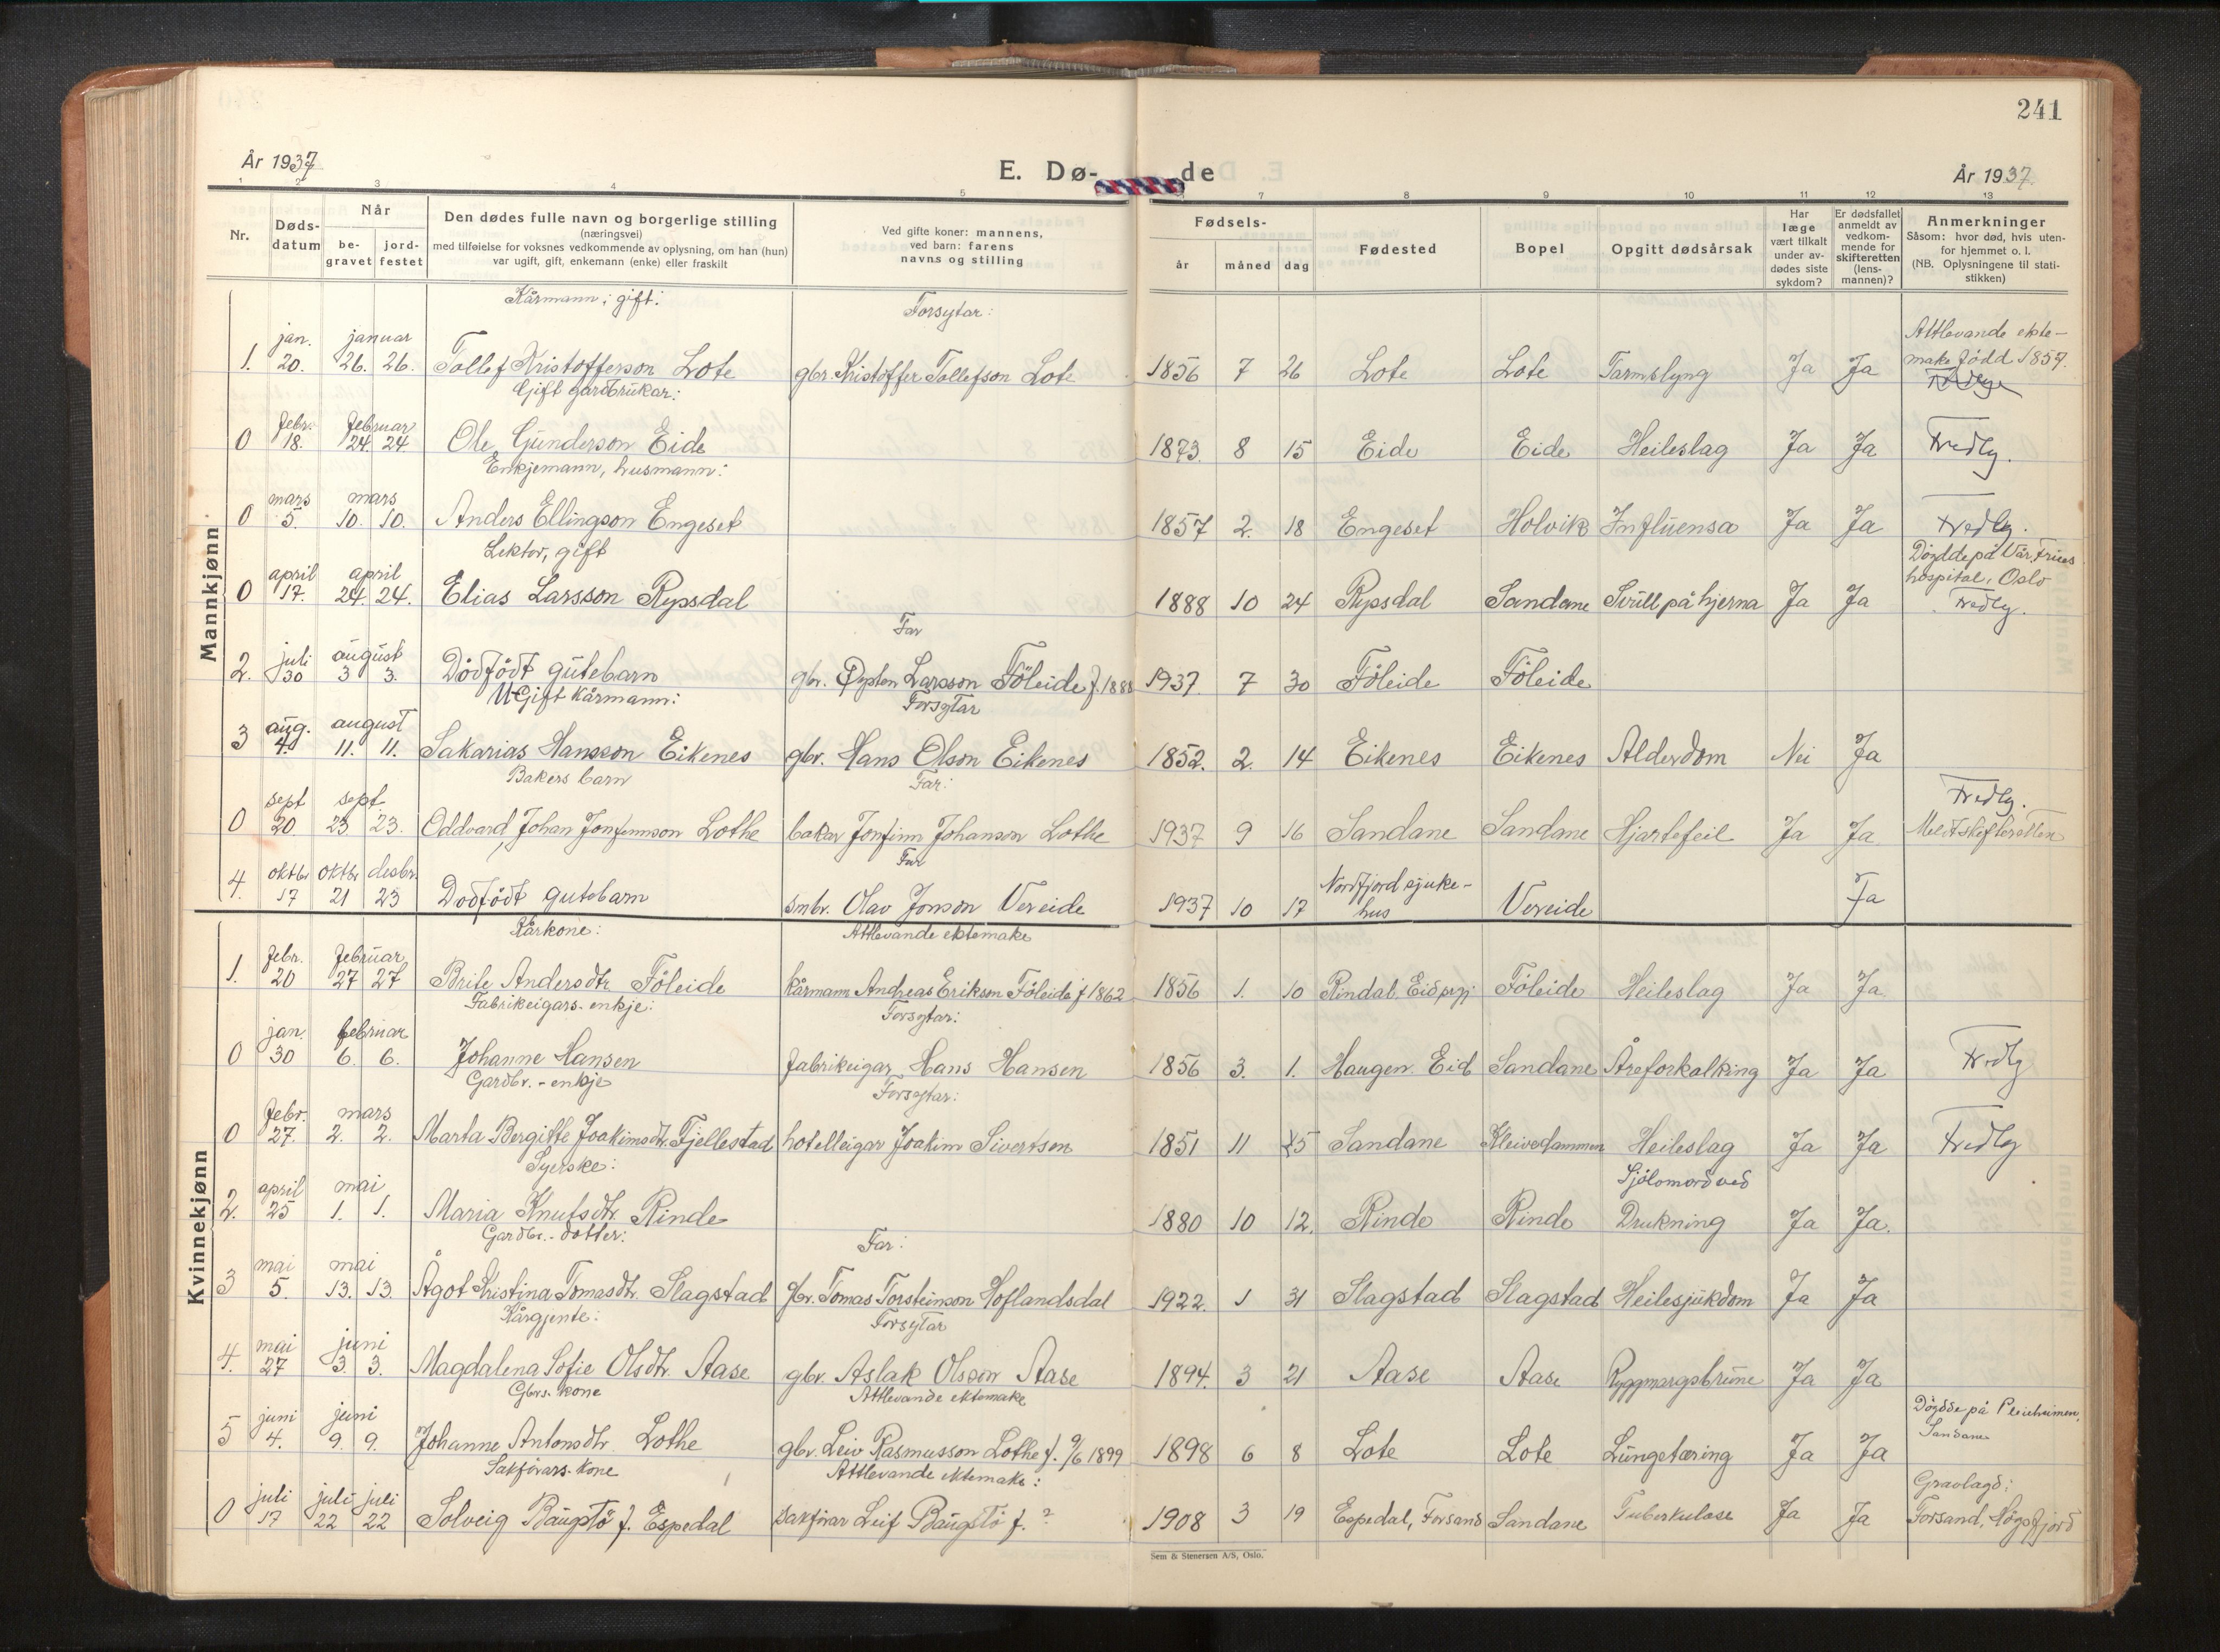 241
År 1937
E. Dø-
de
År 1937.
1 2 3 4 5 7 8 9 10 11 12 13
Nr.
Døds-
datum
Når
be-
gravet
jord-
festet
Den dødes fulle navn og borgerlige stilling
(næringsvei)
med tilføielse for voksnes vedkommende av oplysning, om han (hun)
var ugift, gift, enkemann (enke) eller fraskilt
Ved gifte koner: mannens,
ved barn: farens
navns og stilling
Fødsels-
år
måned
dag
Fødested
Bopel
Opgitt dødsårsak
Har
læge
vært tilkalt
under av-
dødes siste
sykdom?
Er dødsfallet
anmeldt av
vedkom-
mende for
skifteretten
(lens-
mannen)?
Anmerkninger
Såsom: hvor død, hvis uten-
for hjemmet o. l.
(NB. Oplysningene til stati-
stikken)
Mannkjønn
Kårmann; gift:
Forsytar:
Attlevande ekte-
jan. januar
make født 1857.
1. 20. 26. 26. Tollef Kristofferson Lote gbr. Kristoffer Tollefson Lote 1856 7 26 Lote Lote Tarmslyng Ja Ja
Gift gardbrukar:
febr. februar
0 18. 24. 24 Ole Gunderson Eide 1873 8 15 Eide Eide Heileslag Ja Ja Fredlg.
Enkjemann, husmann:
mars mars
0 5. 10. 10. Anders Ellingson Engeset 1857 2. 18 Engeset Holvik Influensa Ja Ja Fredlg.
Lektor, gift
Døydde på Vår Frues
hospital, Oslo
april april
0 17. 24. 24. Elias Larsson Rypsdal 1888 10 24 Rypsdal Sandane Svull på hjerna Ja Ja Fredlg.
Far
juli august
2. 30 3 3. Dødfødt gutebarn gbr. Øysten Larsson Föleide f. 1888 1937. 7 30 Föleide Föleide
UGift Kårmann:
Forsytar
aug. august
3 4. 11. 11. Sakarias Hansson Eikenes gbr. Hans Olson Eikenes 1852. 2. 14 Eikenes Eikenes Alderdom Nei Ja
Bakers barn
Far:
sept sept.
Fredlg.
0 20. 23 23. Oddvard Johan Jonfinnson Lothe bakar Jonfinn Johanson Lothe 1937 9 16 Sandane Sandane Hjartefeil Ja Ja Meldt skifteretten
Far
oktbr oktbr desbr.
Nordfjord sjuke-
4. 17 21 23 Dødfødt gutebarn smbr. Olav Jonson Vereide 1937 10 17 hus Vereide Ja
Kvinnekjønn
Kårkone:
Attlevande ektemake
febr. februar
1. 20 27 27 Brite Andersdtr Föleide kårmann Andreas Erikson Föleide f 1862 1856 1. 10 Rindal. Eid prgj. Föleide Heileslag Ja Ja
Fabrikeigars-enkje:
Forsytar:
jan. februar
0 30 6. 6. Johanne Hansen fabrikeigar Hans Hansen 1856 3. 1. Haugen Eid Sandane Åreforkalking Ja Ja Fredlg
Gardbr.-enkje
Forsytar:
febr. mars
0 27. 2. 2. Marta Bergitte Joakimsdtr. Fjellestad hotelleigar Joakim Sivertsen 1851 11 25 Sandane Kleivedammen Heileslag Ja Ja Fredlg
Syerske:
Sjölomord ved
april mai
2. 25 1. 1. Maria Knutsdtr. Rinde 1880 10 12. Rinde Rinde Drukning Ja Ja.
Gardbr.-dotter:
Far:
mai mai
3 5. 13. 13. Ågot Kristina Tomasdtr. Slagstad gbr. Tomas Torsteinson Hoflandsdal 1922. 1 31 Slagstad Slagstad Heilesjukdom Ja Ja
Kårgjente:
Forsytar
mai juni
4. 27 3. 3. Magdalena Sofie Olsdtr. Aase gbr. Aslak Olsson Aase 1894. 3 21 Aase Aase Ryggmargsbrune Ja Ja
Gbrs. kone
Attlevande ektemake
Døydde på Pleieheimen,
Sandane
juni juni
5 4. 9. 9. Johanne Antonsdtr. Lothe gbr. Leiv Rasmusson Lothe f. 9/6 1899 1898 6 8 Lote Lote Lungetæring Ja Ja
Sakförars-kone
Attlevande ektemake:
Gravlagd:
juli juli juli
0 17 22 22 Solveig Baugstö f. Espedal sakförar Leif Baugstö f. ? 1908 3 19 Espedal, Forsand Sandane Tuberkulose Ja Ja Forsand, Högsfjord
Sem & Stenersen A/S, Oslo.